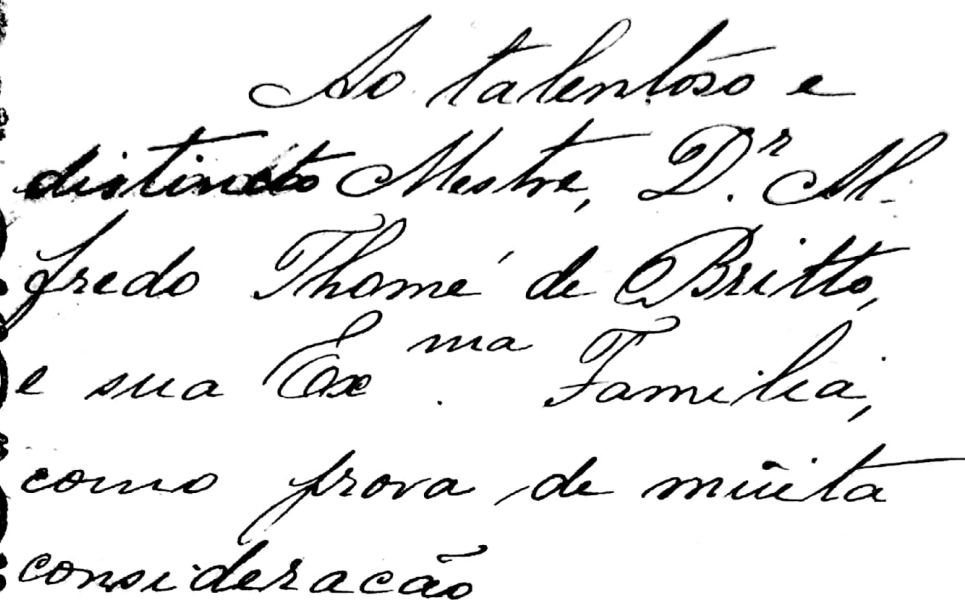 Ao talentoso e
distincto Mestre, D.r Al-
fredo Thomé de Britto,
e sua Ex.ma Familia,
como prova de muita
consideracão